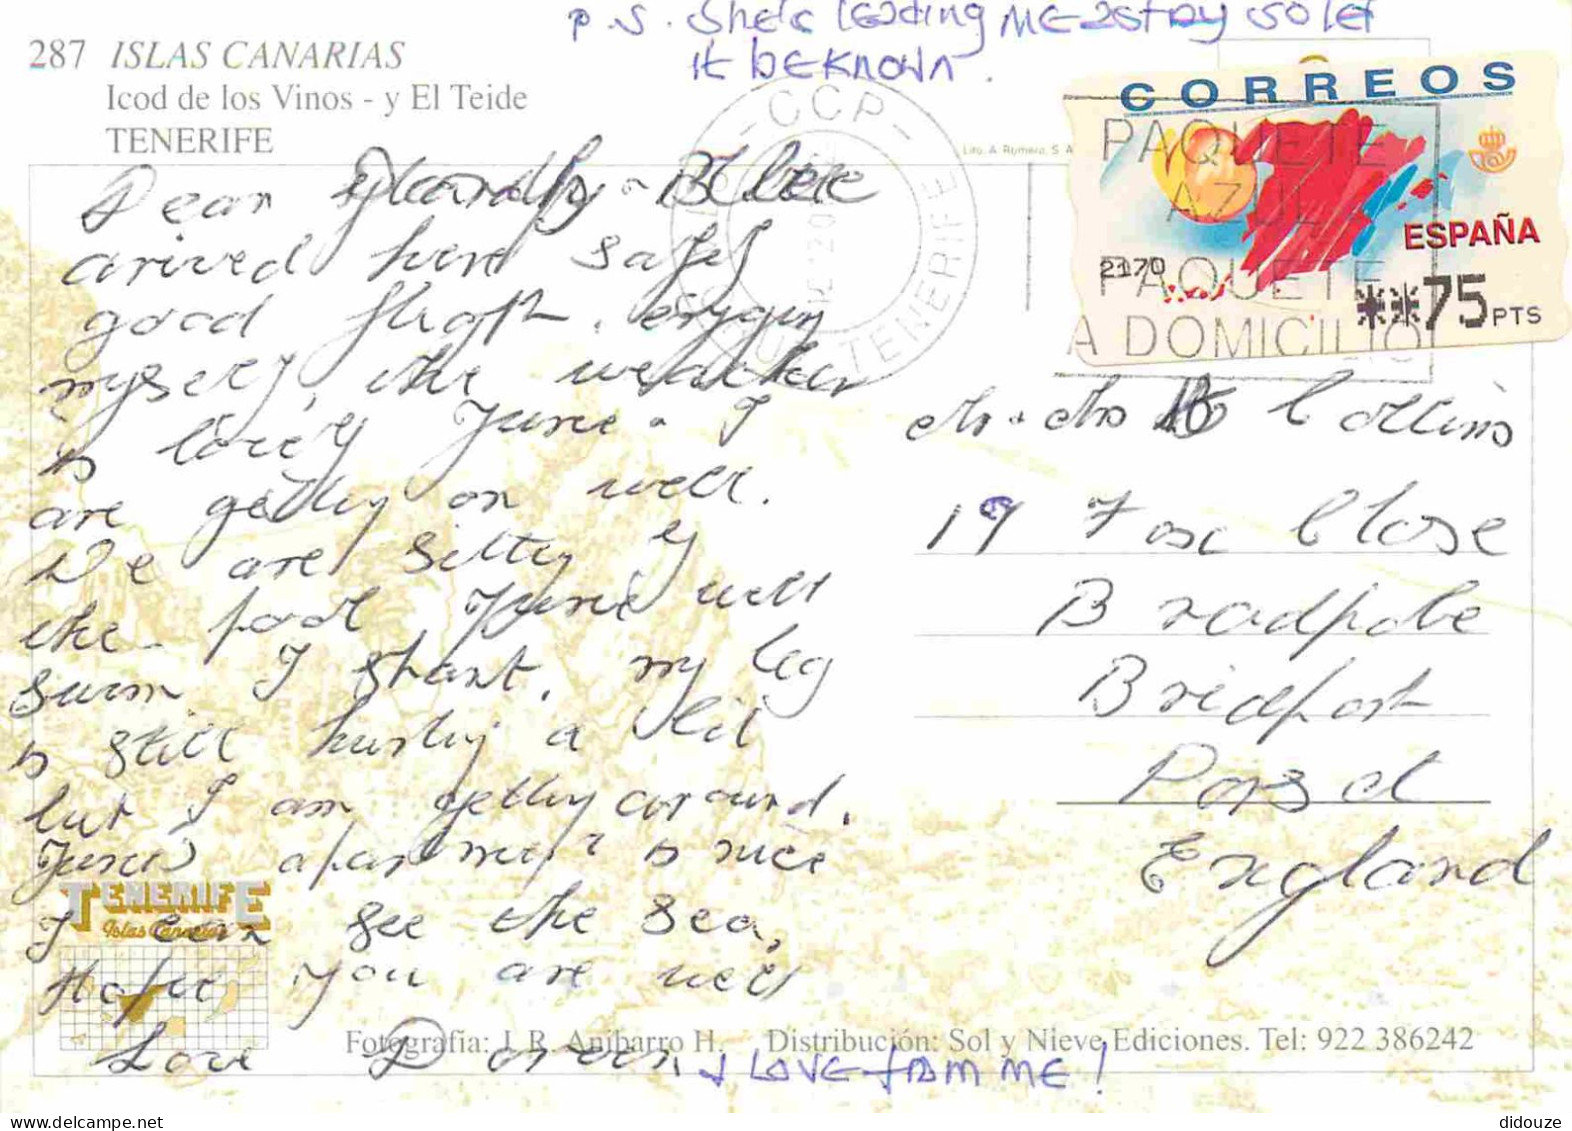 P.S. She's leading ME astray so let
it be known.
287 ISLAS CANARIAS
Icod de los Vinos - y El Teide
TENERIFE
Lito. A. Romero, S. A.
CORREOS
ESPAÑA
2170
**75 PTS
PAQUETE
AZUL
PAQUETE
A DOMICILIO
CCP
TENERIFE
Dear
arrived here safely
good flight. enjoying
myself, the weather
is lovely June & I
are getting on well.
We are sitting by
the pool June will
swim I shant, my leg
is still hurting a bit
but I am getting around.
June's apartment is nice
I can see the sea,
Hope you are well
Love Doreen
& LOVE from ME!
Mr & Mrs B Collins
19 Fox Close
Bradpole
Bridport
Dorset
England
TENERIFE
Islas Canarias
Fotografía: J. R. Anibarro H. Distribución: Sol y Nieve Ediciones. Tel: 922 386242
didouze